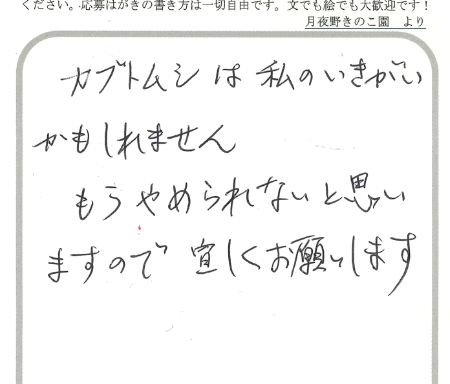 ください。応募はがきの書き方は一切自由です。文でも絵でも大歓迎です！
月夜野きのこ園　より
カブトムシは私のいきがい
かもしれません
もうやめられないと思い
ますので宜しくお願いします